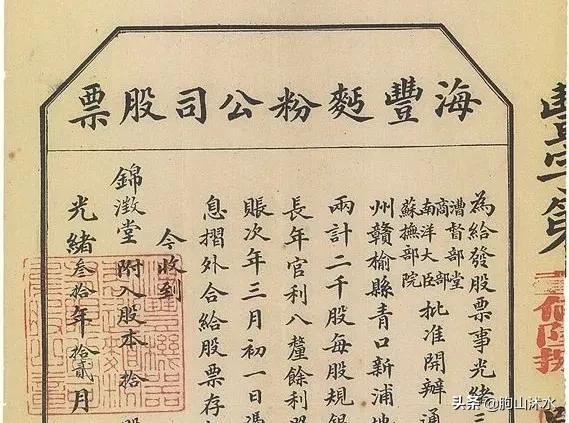 海豐麫粉公司股票
豐字第
為給發股票事光緒三
漕督部堂
商部
南洋大臣
蘇撫部院
批准開辦通
州贛榆縣青口新浦地
兩計二千股每股規銀
長年官利八釐餘利
賬次年三月初一日憑
息摺外合給股票存
今收到
錦澂堂 附入股本 拾
光緒叁拾年拾貳月
头条 @朐山沐水